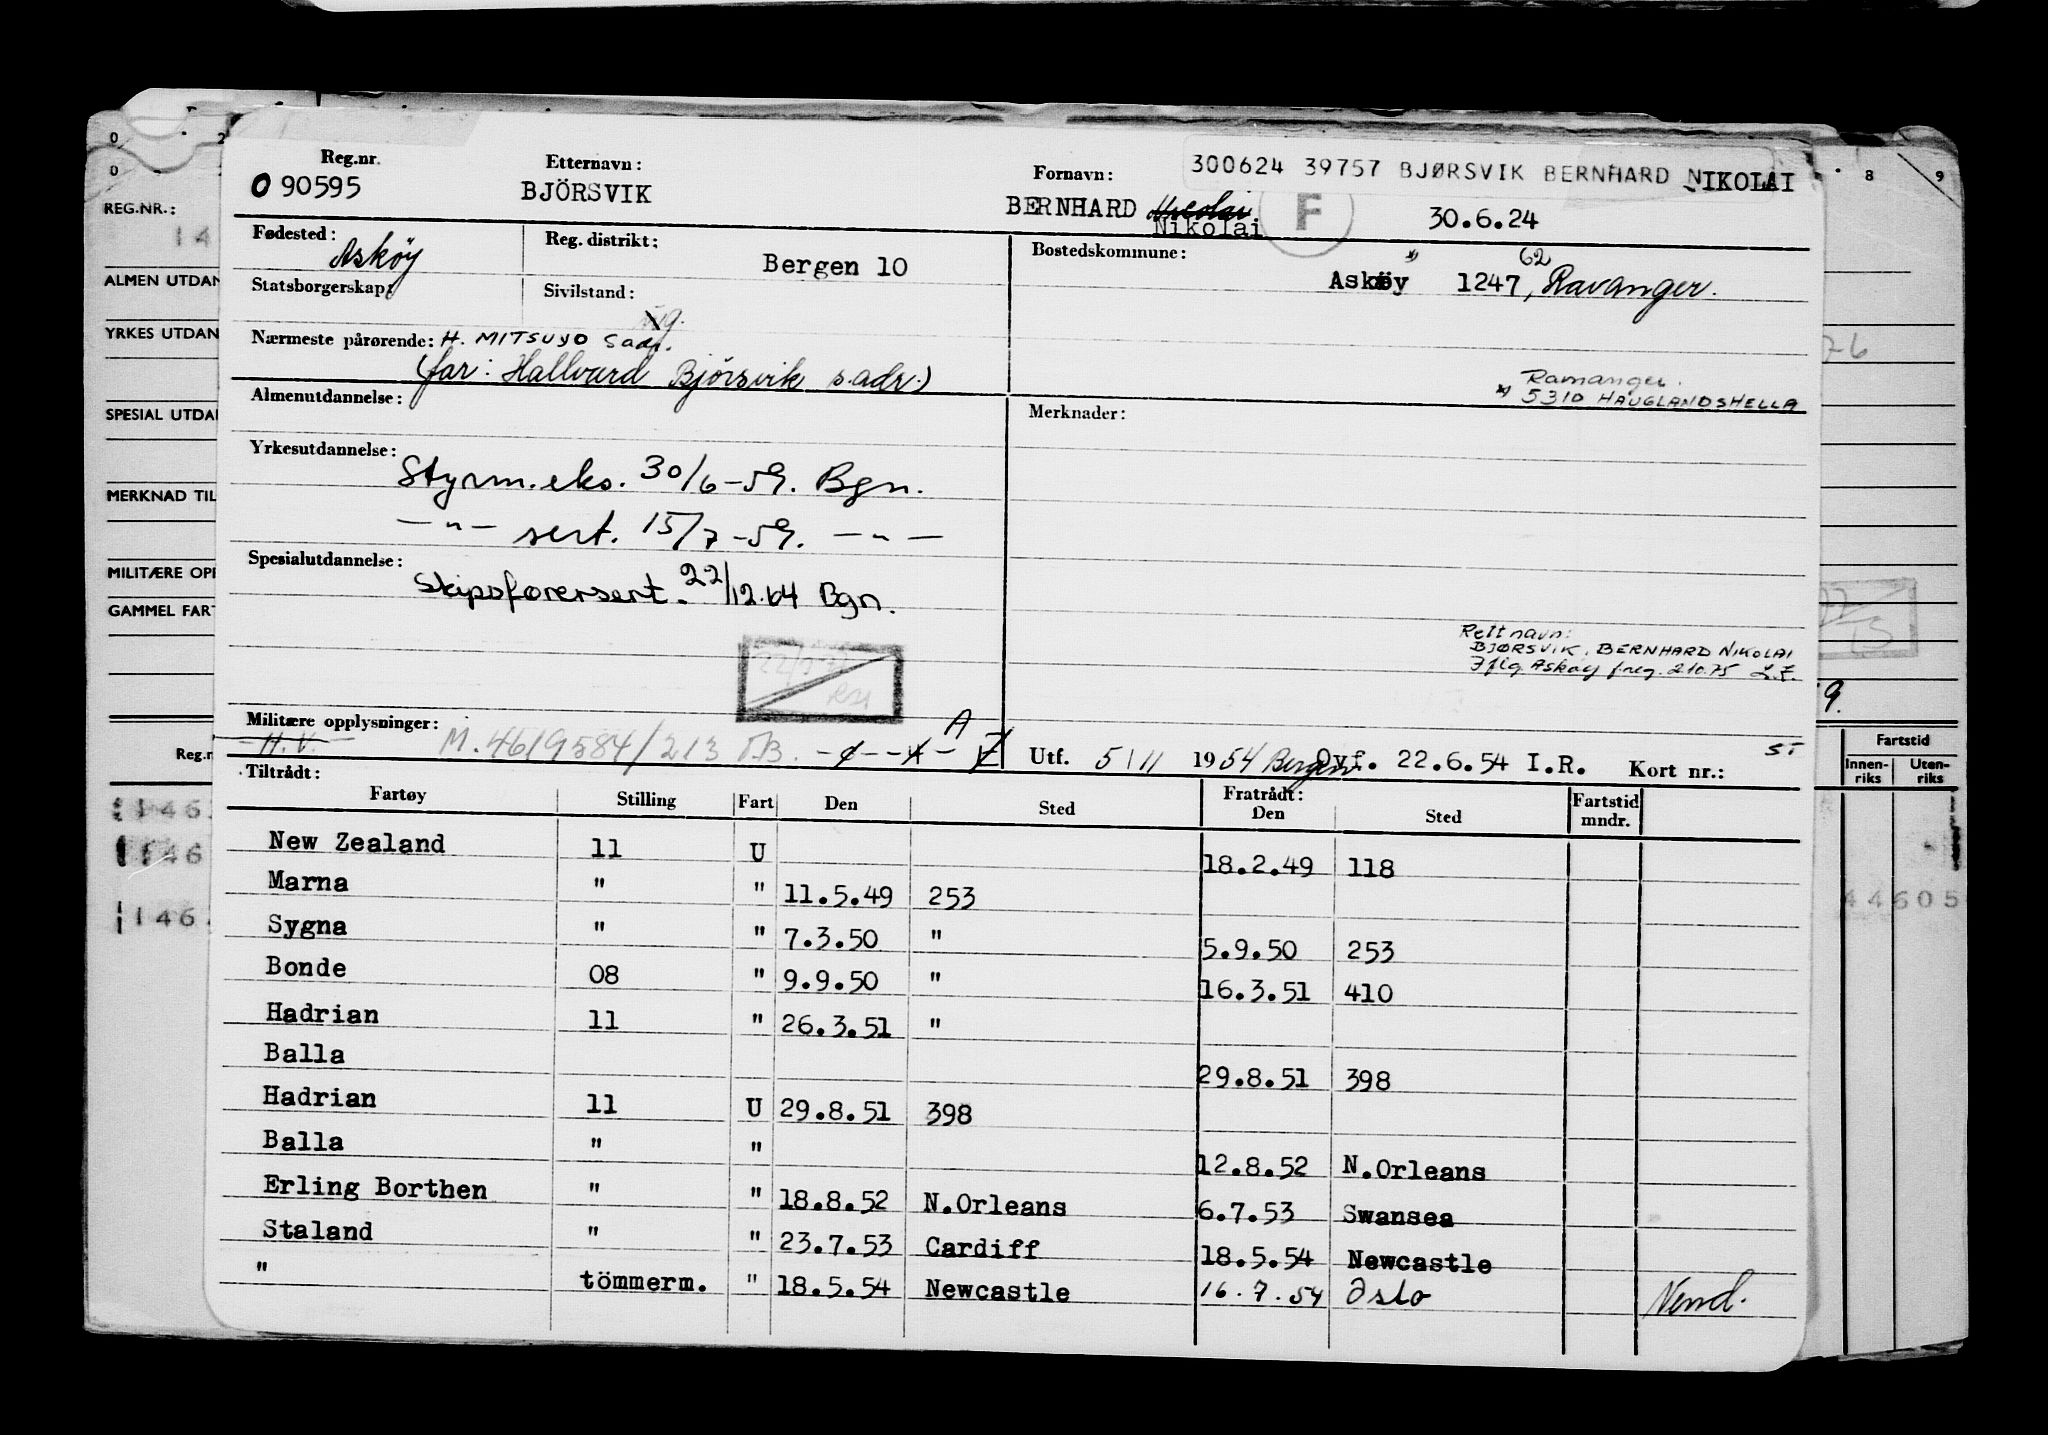 Reg.nr. Etternavn: Fornavn: 300624 39757 BJØRSVIK BERNHARD NIKOLAI
090595 BJÖRSVIK BERNHARD Nicolai Nikolai F 30.6.24
Fødested: Asköy Reg. distrikt: Bergen 10 Bostedskommune: Asköy 1247, 62 Ravanger.
Statsborgerskap: Sivilstand: ug.
Nærmeste pårørende: H. MITSUYO S adr.
(far: Hallvard Björsvik s.adr.)
Ramanger.
x) 5310 HAUGLANDSHELLA
Almenutdannelse: Merknader:
Yrkesutdannelse: Styrm.eks. 30/6-59. Bgn.
— " — sert. 15/7-59. — " —
Spesialutdannelse: Skipsførersert. 22/12.64 Bgn.
Rett navn:
BJØRSVIK, BERNHARD NIKOLAI
Jflg Askøy f.reg. 21075
Militære opplysninger: H.V. M.4619584/213 A
Utf. 5/11 1954 Bergen Ovf. 22.6.54 I.R. Kort nr.:
Tiltrådt: Fratrådt:
Fartøy Stilling Fart Den Sted Den Sted Fartstid mndr.
New Zealand 11 U 18.2.49 118
Marna " " 11.5.49 253
Sygna " " 7.3.50 " 5.9.50 253
Bonde 08 " 9.9.50 " 16.3.51 410
Hadrian 11 " 26.3.51 "
Balla 29.8.51 398
Hadrian 11 U 29.8.51 398
Balla " " 12.8.52 N.Orleans
Erling Borthen " " 18.8.52 N.Orleans 6.7.53 Swansea
Staland " " 23.7.53 Cardiff 18.5.54 Newcastle
" tömmerm. " 18.5.54 Newcastle 16.7.54 Oslo Vend.
REG.NR.:
ALMEN UTDAN
YRKES UTDAN
SPESIAL UTDA
MERKNAD TIL
MILITÆRE OPP
GAMMEL FART
Reg.n
Fartstid
Innenriks Utenriks